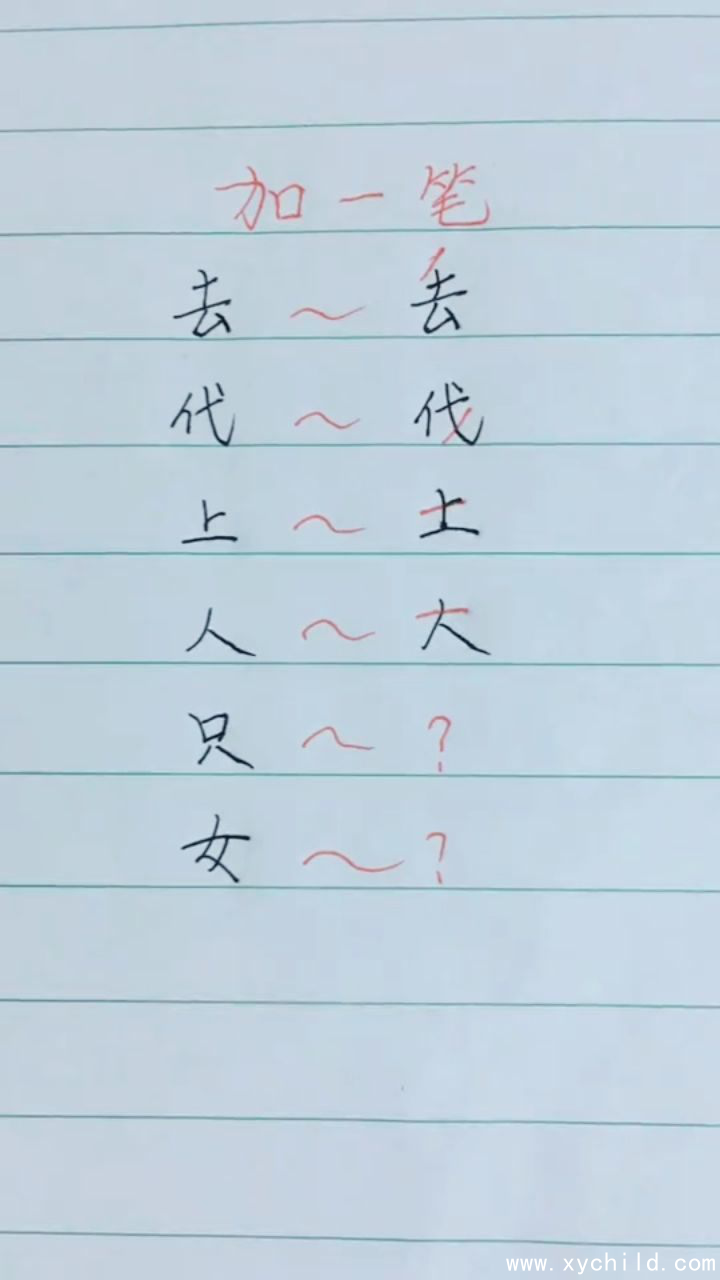 加一笔
去~丢
代~伐
上~土
人~大
只~?
女~?
www.xychild.com